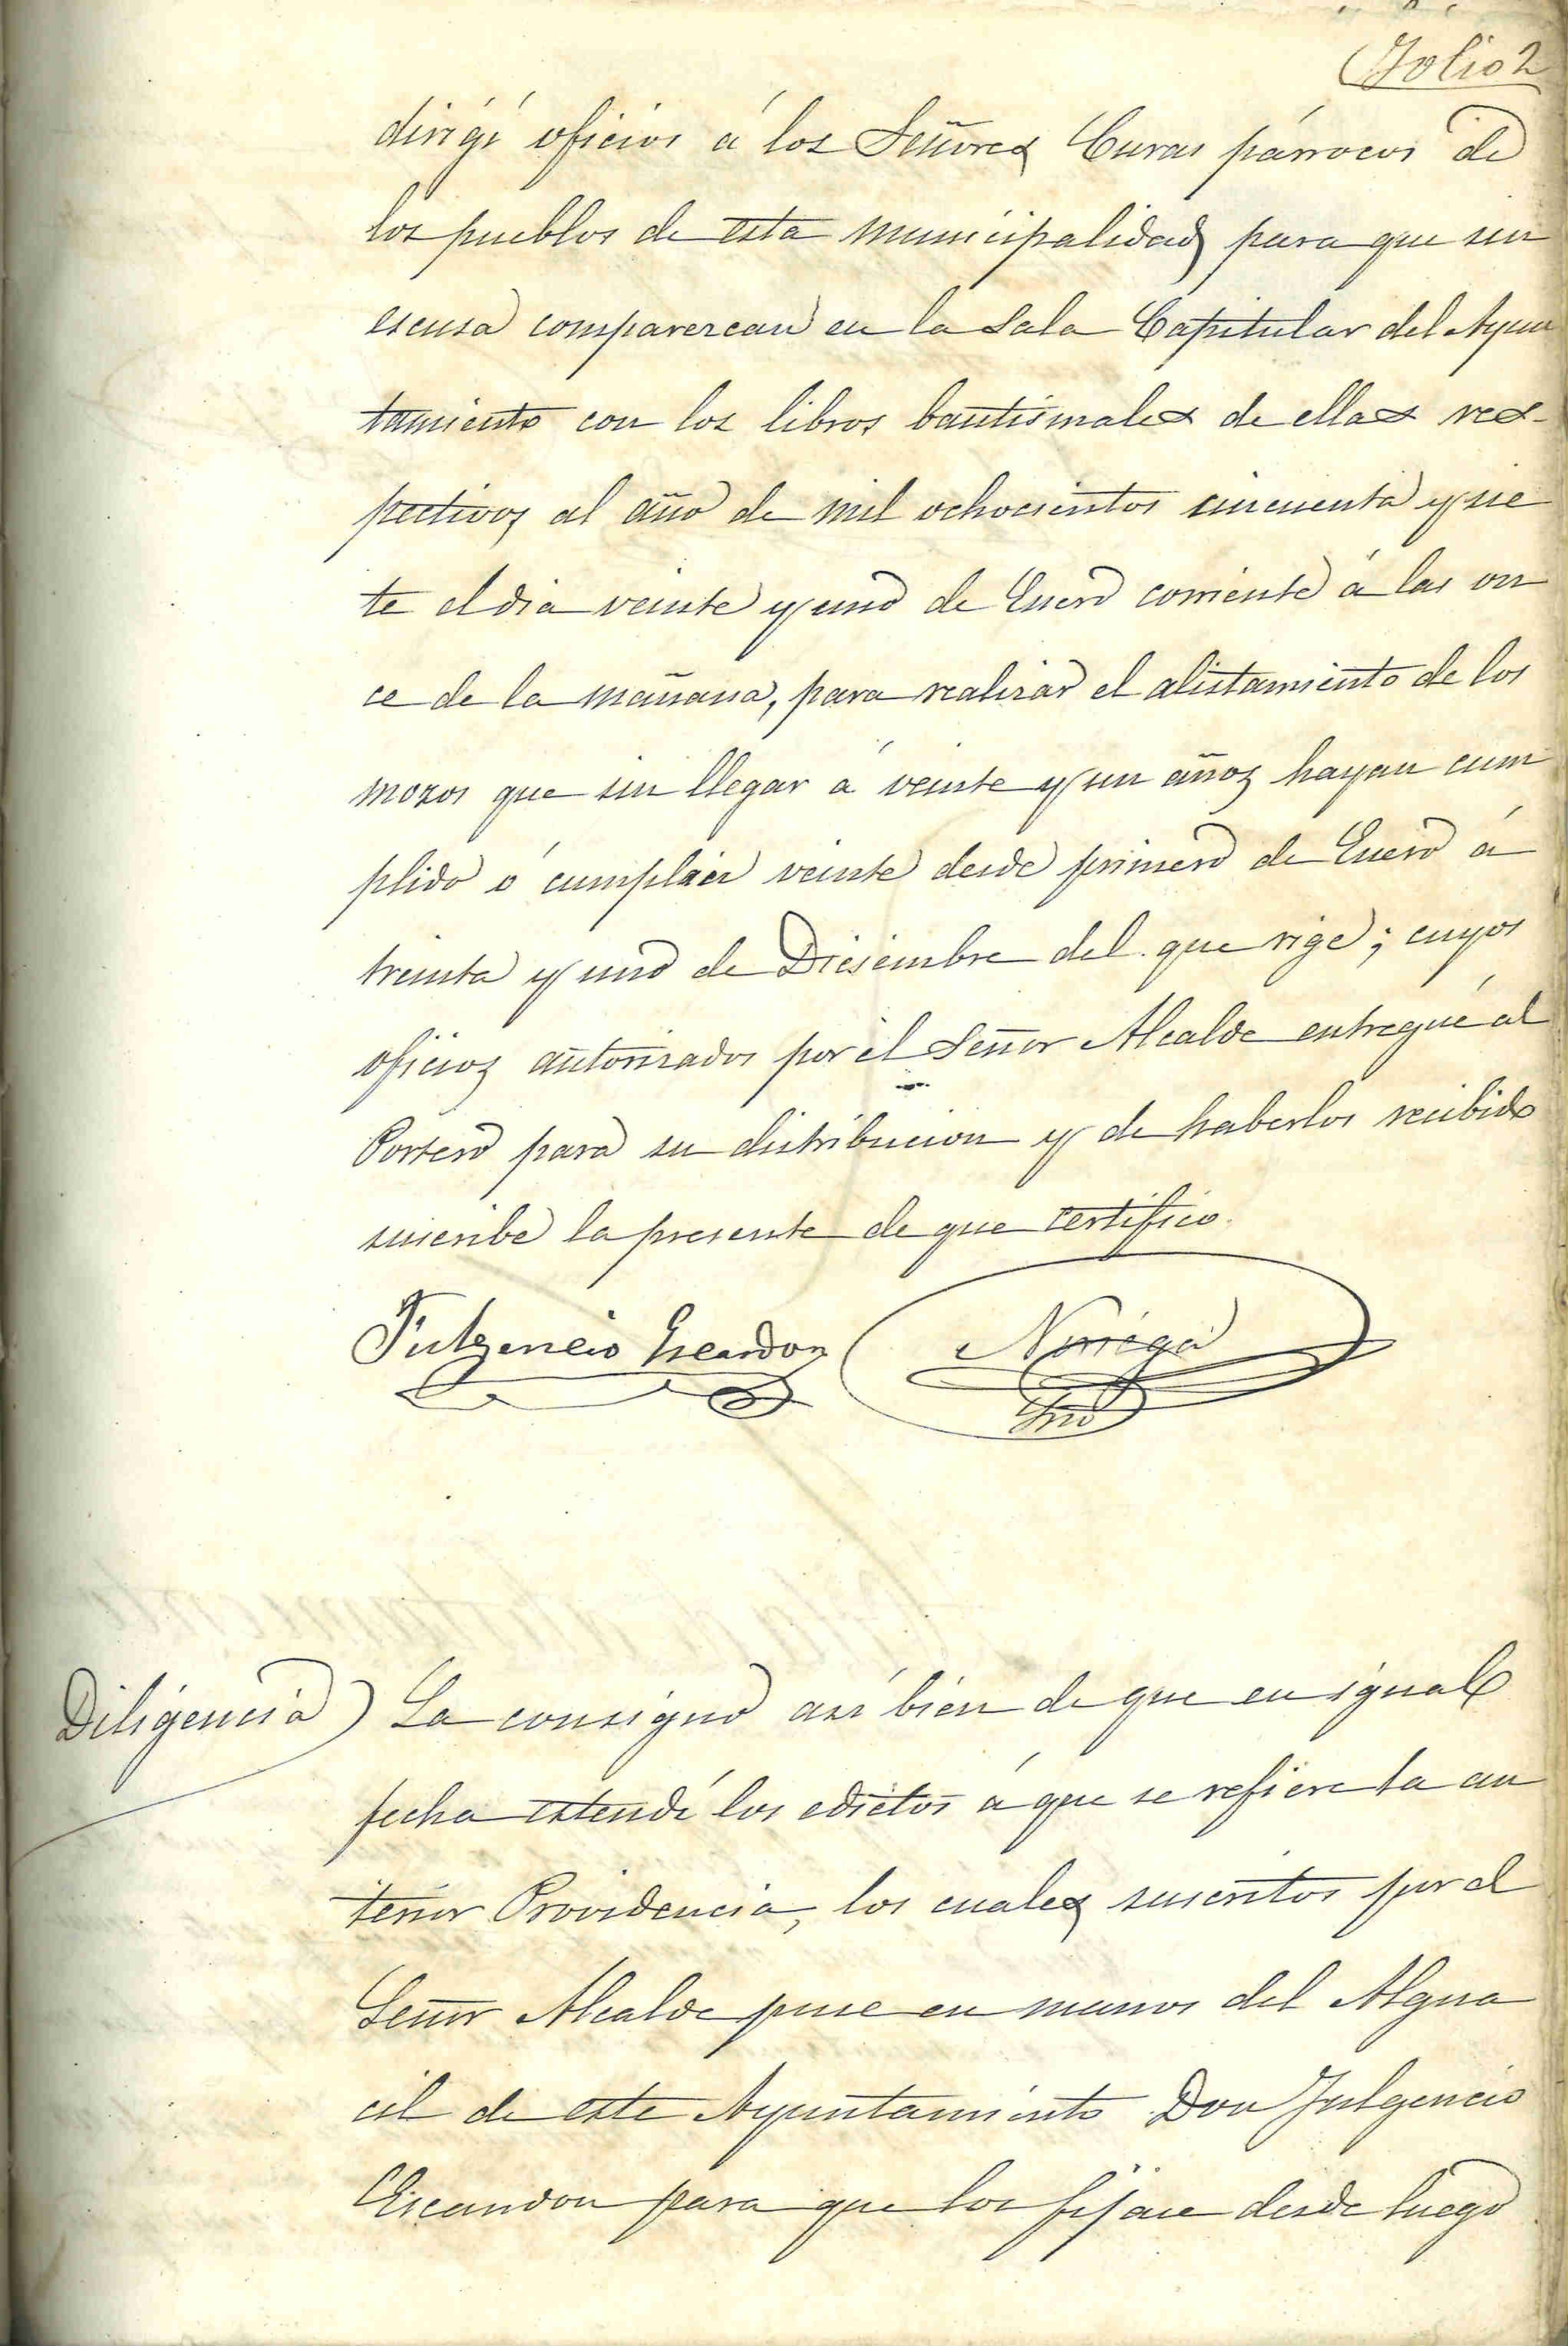 Folio 2
dirigí oficios á los Señores Curas párrocos de
los pueblos de esta municipalidad para que sin
escusa comparezcan en la Sala Capitular del Ayun
tamiento con los libros bautismales de ellas res-
pectivos al año de mil ochocientos cincuenta y sie
te el dia veinte y uno de Enero corriente á las on
ce de la mañana, para realizar el alistamiento de los
mozos que sin llegar á veinte y un años hayan cum
plido ó cumplan veinte desde primero de Enero á
treinta y uno de Diciembre del que rige; cuyos
oficios autorizados por el Señor Alcalde entregué al
Portero para su distribucion y de haberlos recibido
suscribe la presente de que certifico.
Fulgencio Escandon Noriega
Srio
Diligencia) La consigno asi bien de que en igual
fecha estendí los edictos á que se refiere la an
terior Providencia, los cuales suscritos por el
Señor Alcalde puse en manos del Algua
cil de este Ayuntamiento Don Fulgencio
Escandon para que los fijase desde luego